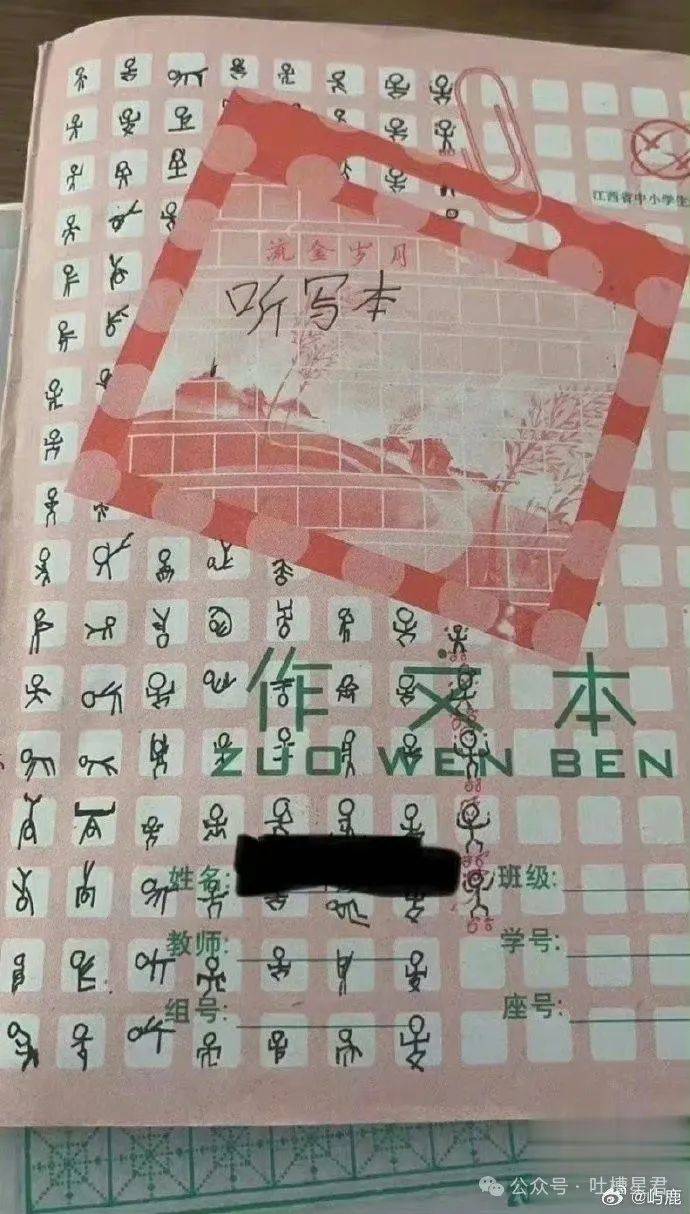 江西省中小学生
流金岁月
听写本
作文本
ZUO WEN BEN
姓名:
班级:
教师:
学号:
组号:
座号:
公众号·吐槽星君
@屿鹿